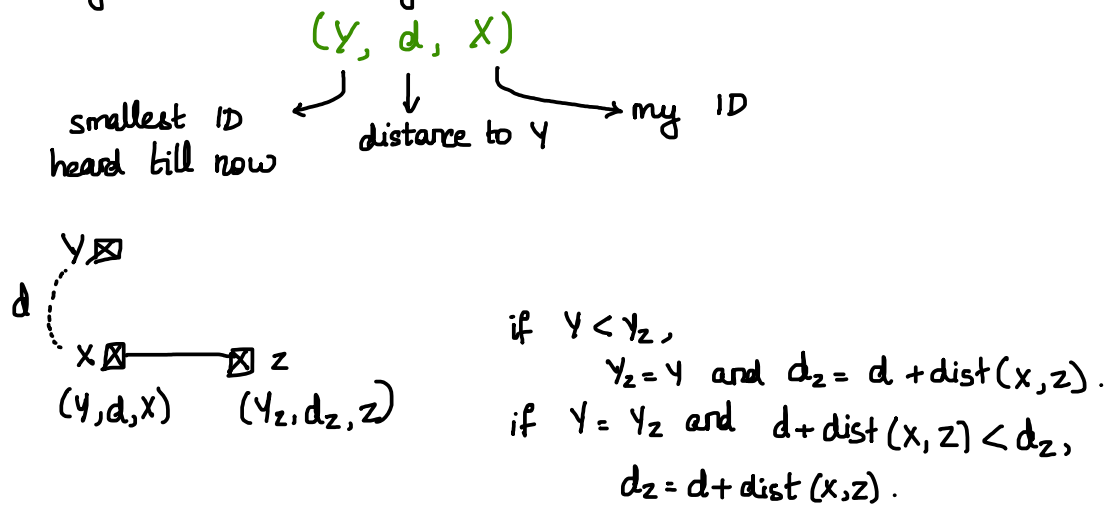 (Y, d, X)
smallest ID
heard till now
distance to Y
my ID
Y
d
X
Z
(Y,d,X)
(Yz,dz,Z)
if Y < Yz,
Yz = Y and dz = d + dist(X,Z).
if Y = Yz and d + dist(X,Z) < dz,
dz = d + dist(X,Z).